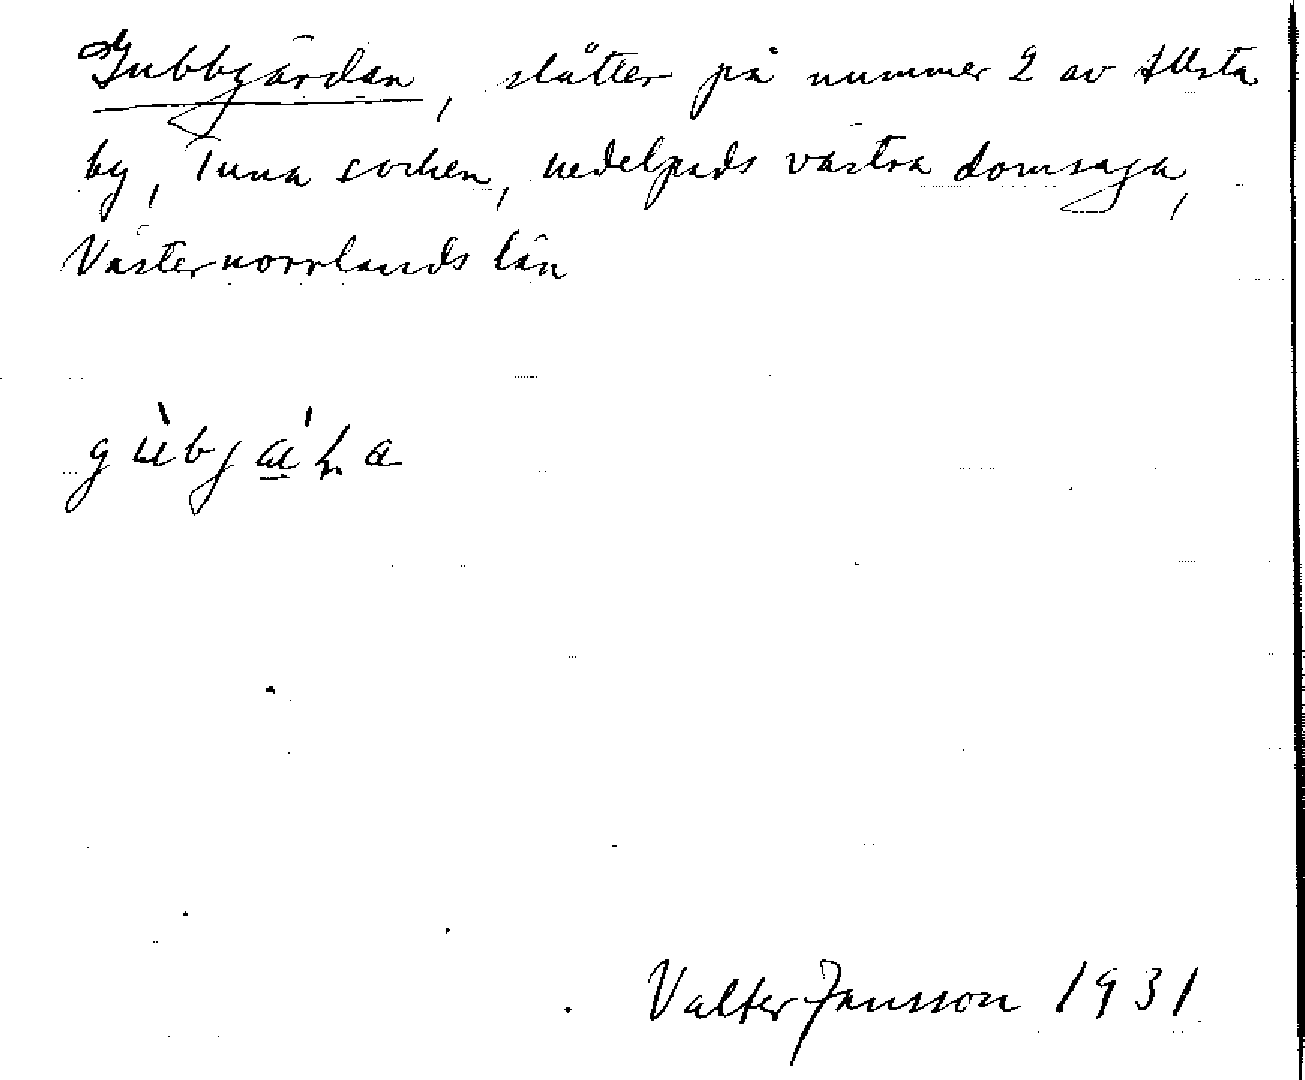 Gubbgärdan, slåtter på nummer 2 av Allsta
by, Tuna socken, Medelpads västra domsaga,
Västernorrlands län
Valter Jansson 1931